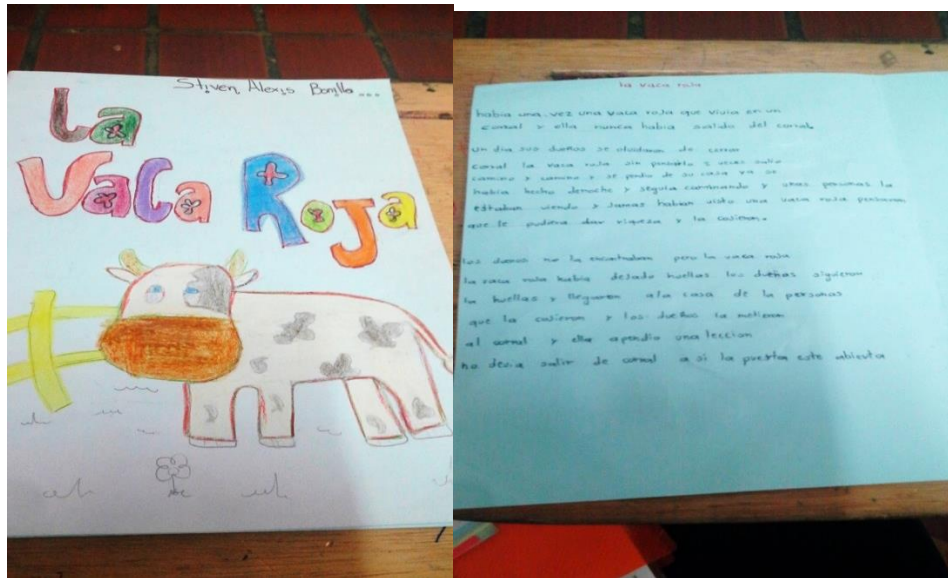 Stiven Alexis Bonilla...
La
Vaca Roja
la vaca roja
habia una vez una vaca roja que vivia en un
corral y ella nunca habia salido del corral
un dia sus dueños se olvidaron de cerrar
corral la vaca roja sin pensarlo 2 veces salio
camino y camino y se perdio de su casa ya se
habia hecho denoche y seguia caminando y unas personas la
estaban viendo y jamas habian visto una vaca roja pensaron
que le pudiera dar riquesa y la cojieron.
los dueños no la encontraban pero la vaca roja
la vaca roja habia dejado huellas los dueños siguieron
la huellas y llegaron ala casa de la personas
que la cojieron y los dueños la metieron
al corral y ella apendio una leccion
no devia salir de corral a si la puerta este abierta